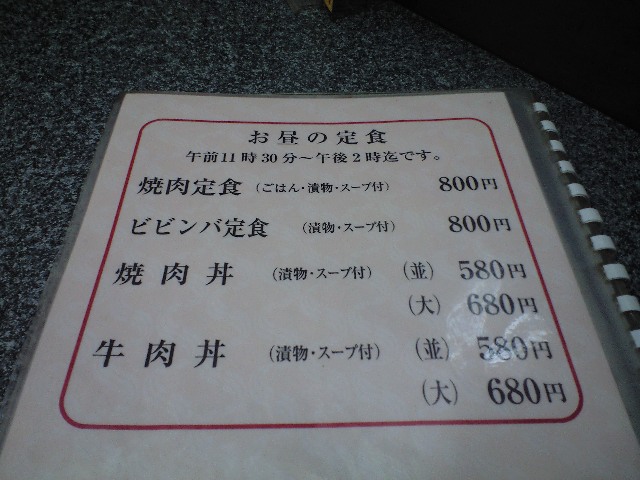 お昼の定食
午前11時30分～午後2時迄です。
焼肉定食（ごはん・漬物・スープ付）800円
ビビンバ定食（漬物・スープ付）800円
焼肉丼（漬物・スープ付）（並）580円
（大）680円
牛肉丼（漬物・スープ付）（並）580円
（大）680円